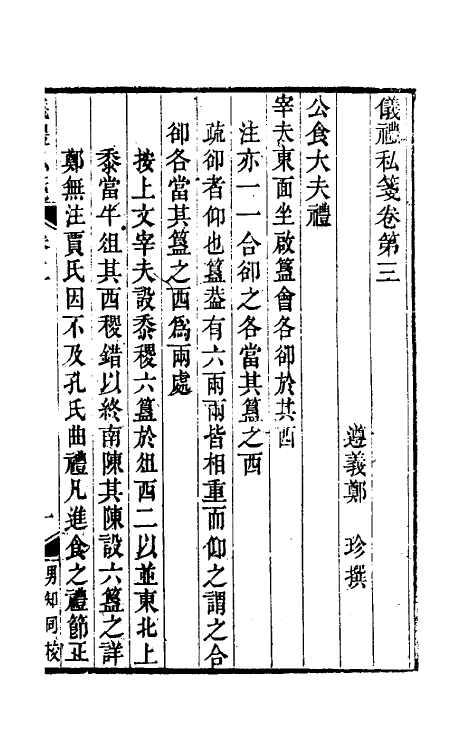 儀禮私箋卷第三
遵義鄭　珍撰
公食大夫禮
宰夫東面坐啟簋會各卻於其西
注亦一一合卻之各當其簋之西
疏卻者仰也簋葢有六兩兩皆相重而仰之謂之合
卻各當其簋之西爲兩處
按上文宰夫設黍稷六簋於俎西二以並東北上
黍當牛俎其西稷錯以終南陳其陳設六簋之詳
鄭無注賈氏因不及孔氏曲禮凡進食之禮節正
男知同校